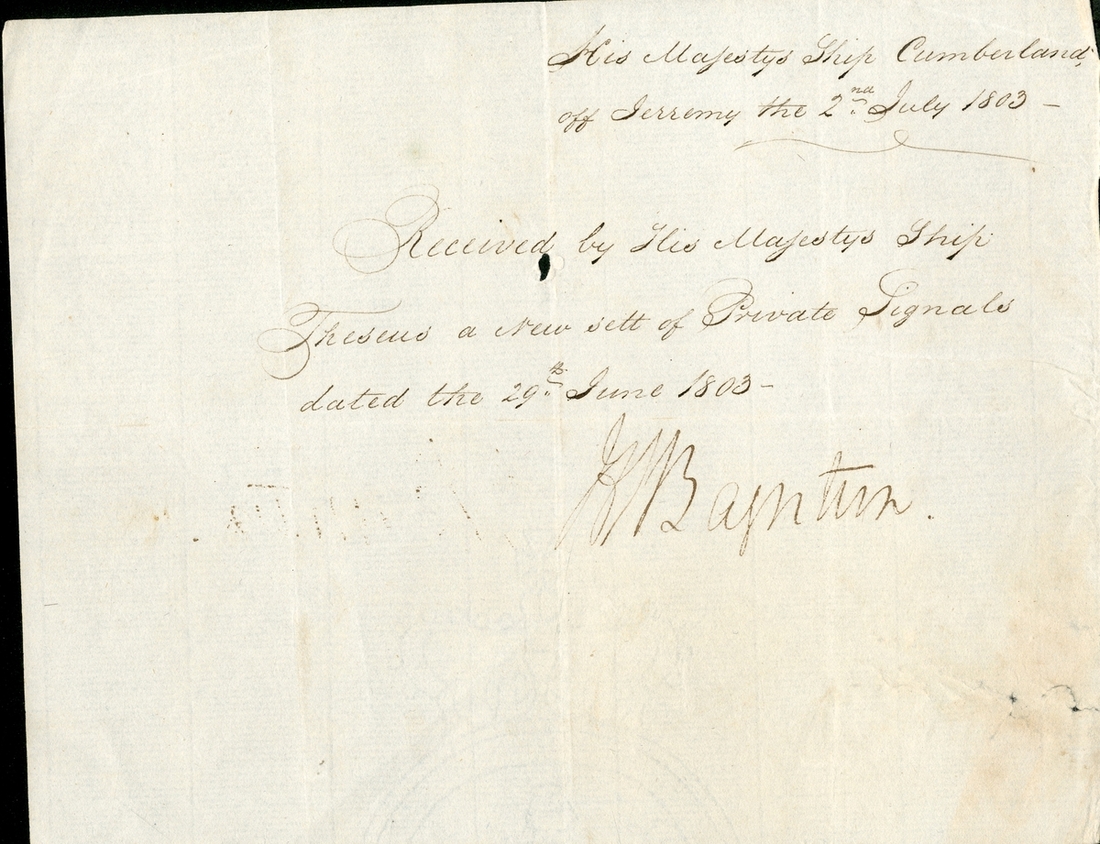 His Majestys Ship Cumberland,
off Jerremy the 2nd July 1803 –
Received by His Majestys Ship
Theseus a new sett of Private Signals
dated the 29th June 1803 –
HWBayntun.